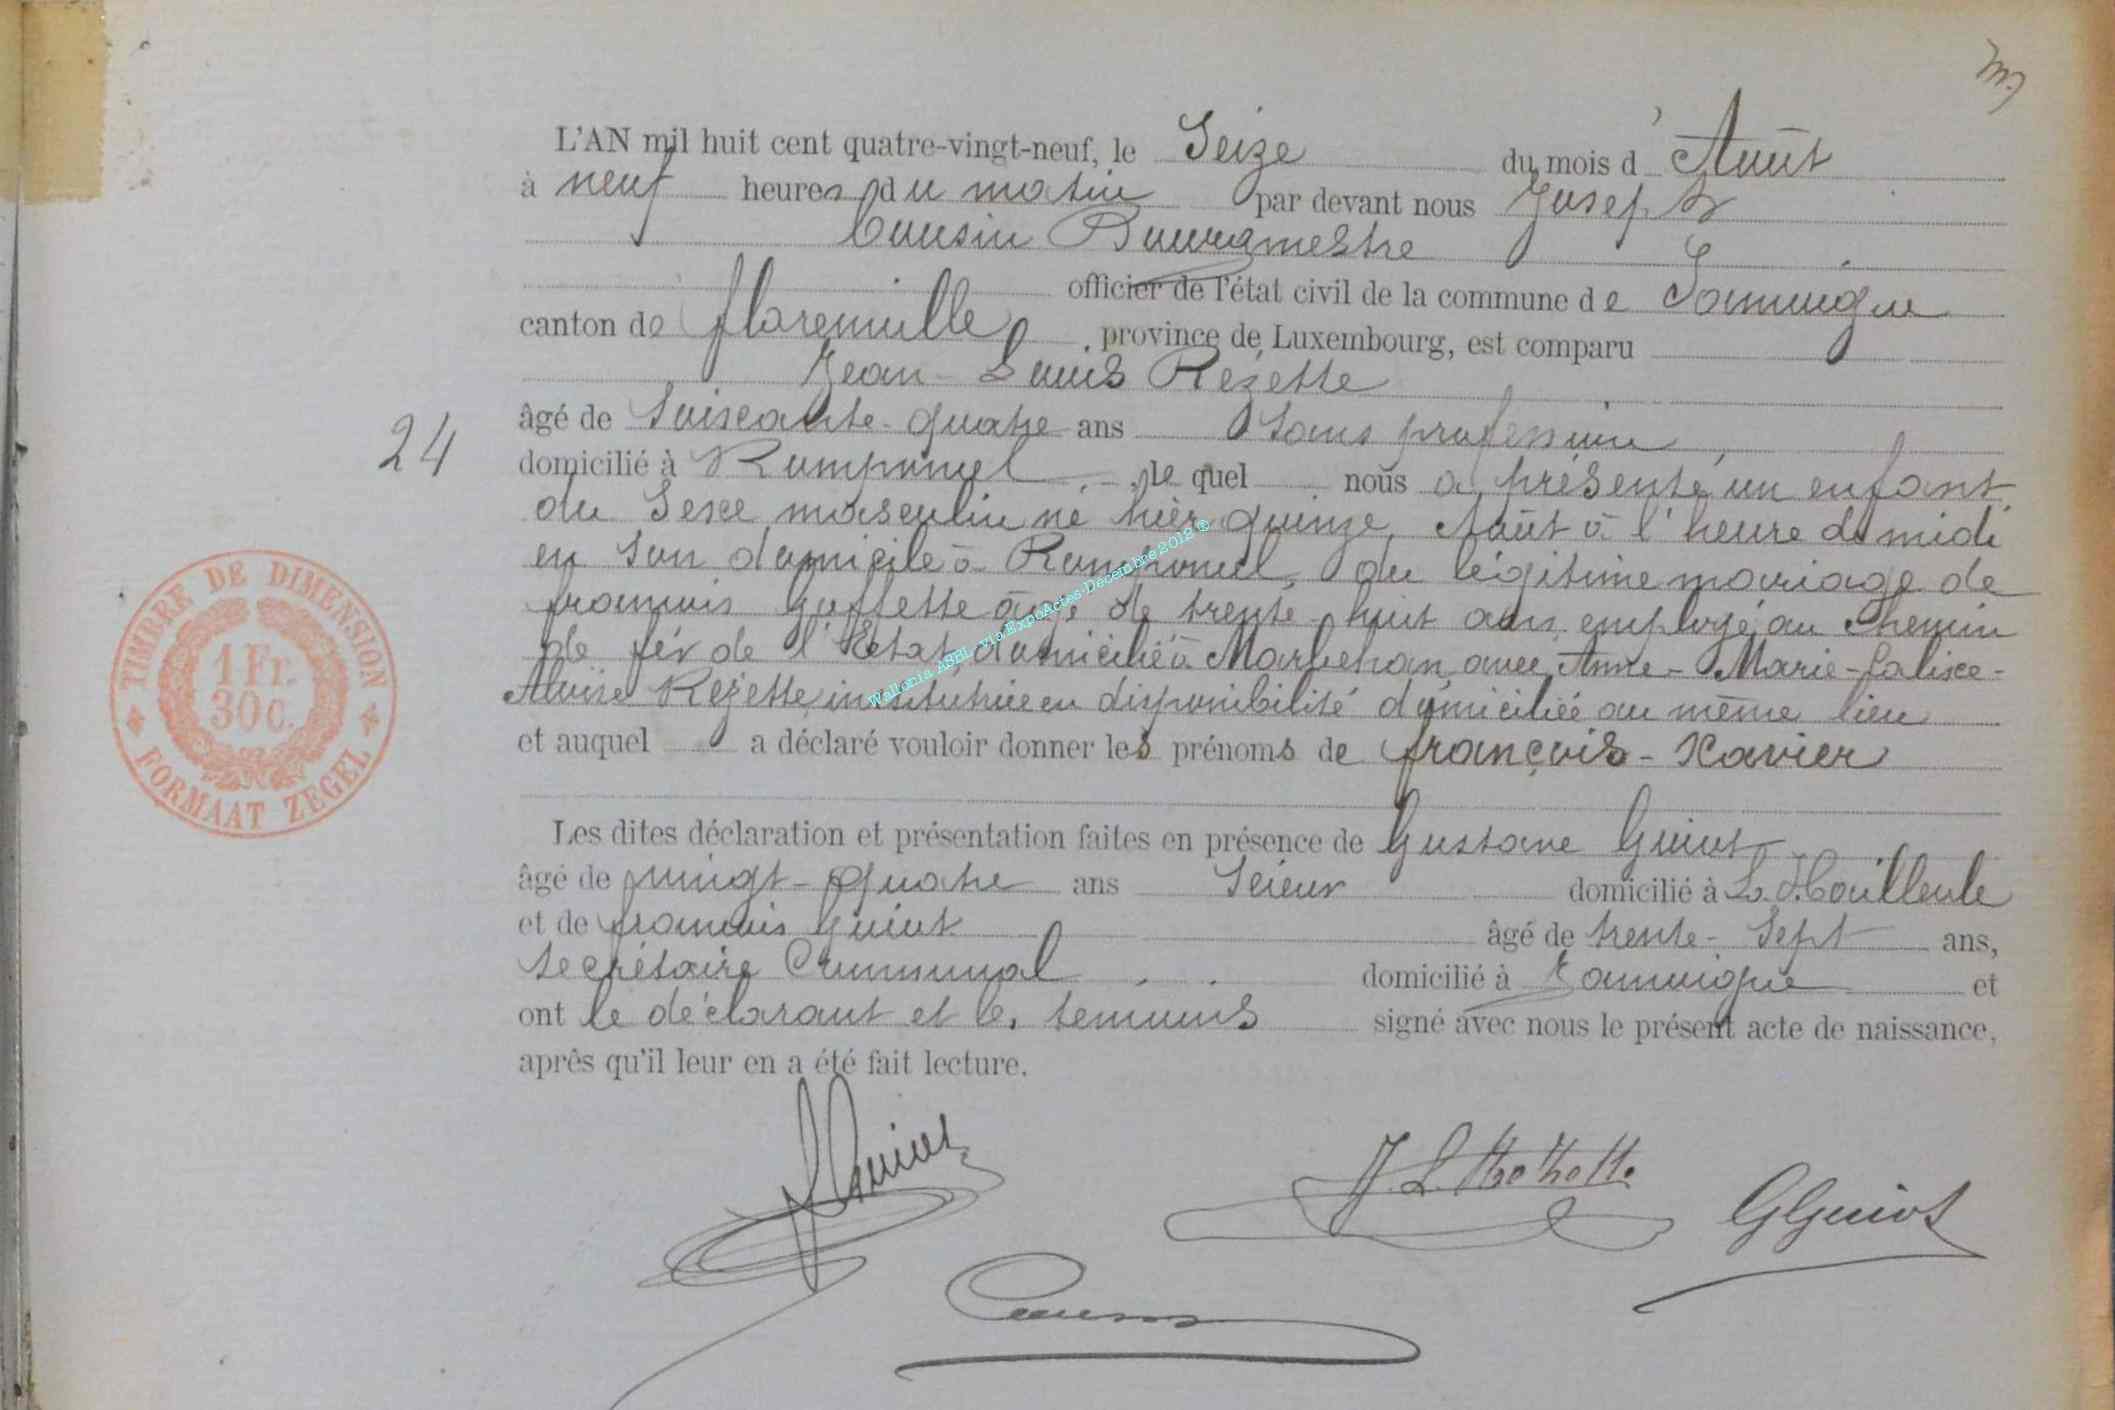 L'AN mil huit cent quatre-vingt-neuf, le Seize du mois d'Août
à neuf heures du matin par devant nous Joseph
Cousin Bourgmestre
officier de l'état civil de la commune de Jamoigne
canton de florenville province de Luxembourg, est comparu
Jean-Louis Rézette
âgé de Soixante-quatre ans Sans profession
24
domicilié à Romponcel, le quel nous a présenté un enfant
du Sexe masculin né hier quinze Août à l'heure de midi
en Son domicile à Romponcel, du légitime mariage de
francois Goffette âgé de trente-huit ans, employé au Chemin
de fer de l'Etat, domicilié à Marbehan, avec Anne-Marie-Calixe-
Aloïse Rezette institutrice en disponibilité domiciliée au même lieu
et auquel a déclaré vouloir donner les prénoms de françois-Xavier
Les dites déclaration et présentation faites en présence de Gustave Guiot
âgé de vingt-quatre ans Scieur domicilié à
et de francois Guiot âgé de trente-Sept ans,
Secrétaire Communal domicilié à Jamoigne et
ont le déclarant et les temoins signé avec nous le présent acte de naissance,
après qu'il leur en a été fait lecture.
TIMBRE DE DIMENSION
1 Fr.
30 C.
FORMAAT ZEGEL
Wallonia ASBL via ExpoActes-Decembre 2012 ©
F Guiot
J. L. Rezette
G Guiot
Cousin